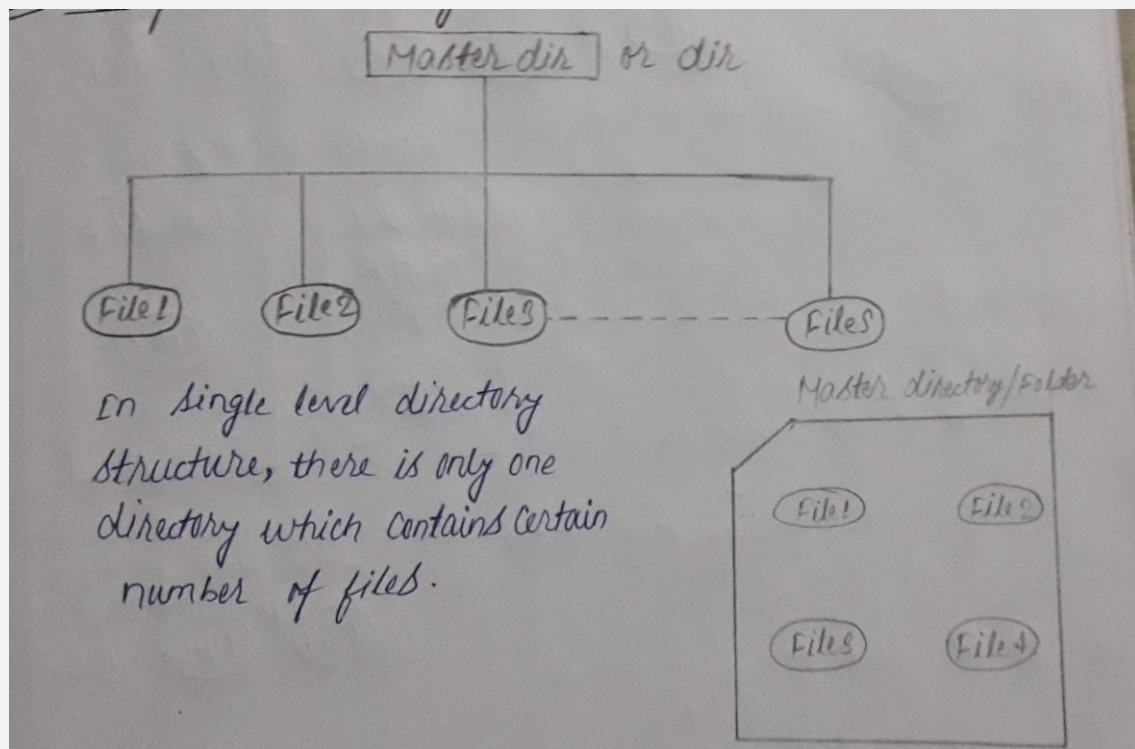 Master dir or dir
File1 File2 File3 Files
In single level directory
structure, there is only one
directory which contains certain
number of files.
Master directory/Folder
File1 File2
File3 File4